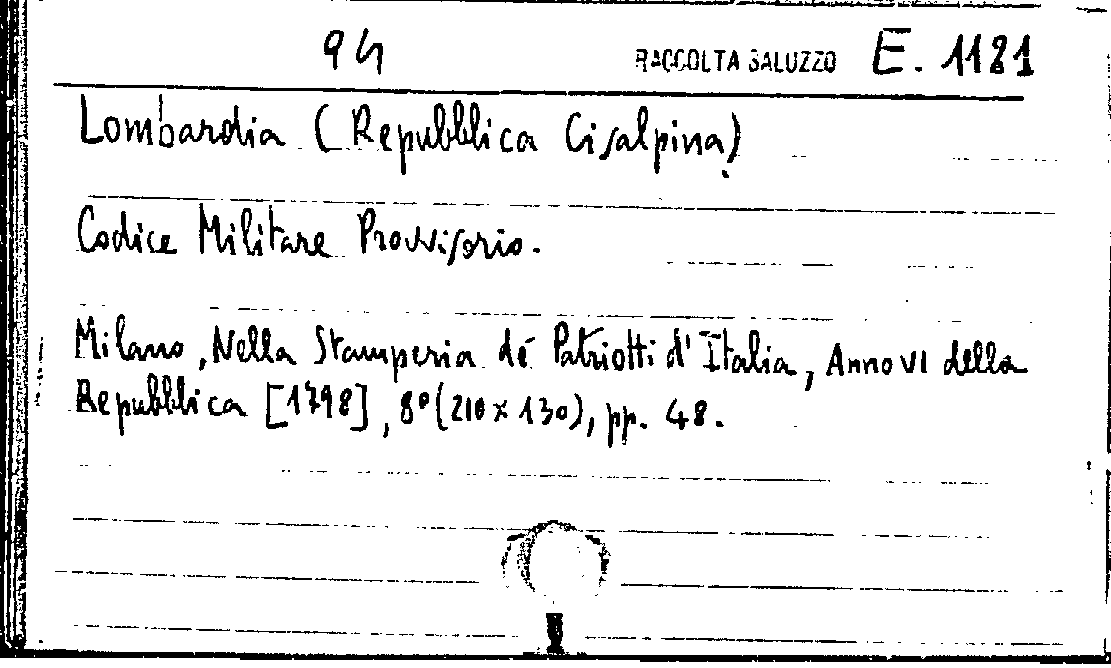 94 RACCOLTA SALUZZO E. 1181
Lombardia (Repubblica Cisalpina)
Codice Militare Provvisorio.
Milano, Nella Stamperia dé Patriotti d'Italia, Anno VI della
Repubblica [1798], 8° (210 x 130), pp. 48.